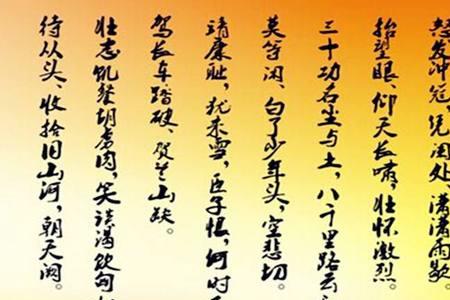 怒发冲冠，凭阑处、潇潇雨歇。
抬望眼、仰天长啸，壮怀激烈。
三十功名尘与土，八千里路云
莫等闲、白了少年头，空悲切。
靖康耻，犹未雪，臣子恨，何时
驾长车踏破、贺兰山缺。
壮志饥餐胡虏肉，笑谈渴饮匈
待从头、收拾旧山河，朝天阙。